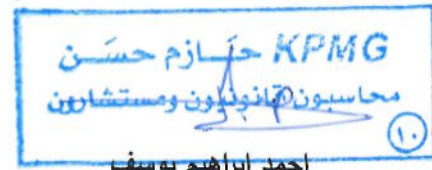 KPMG حازم حسن
محاسبون قانونيون ومستشارون
١٠
احمد ابراهيم يوسف